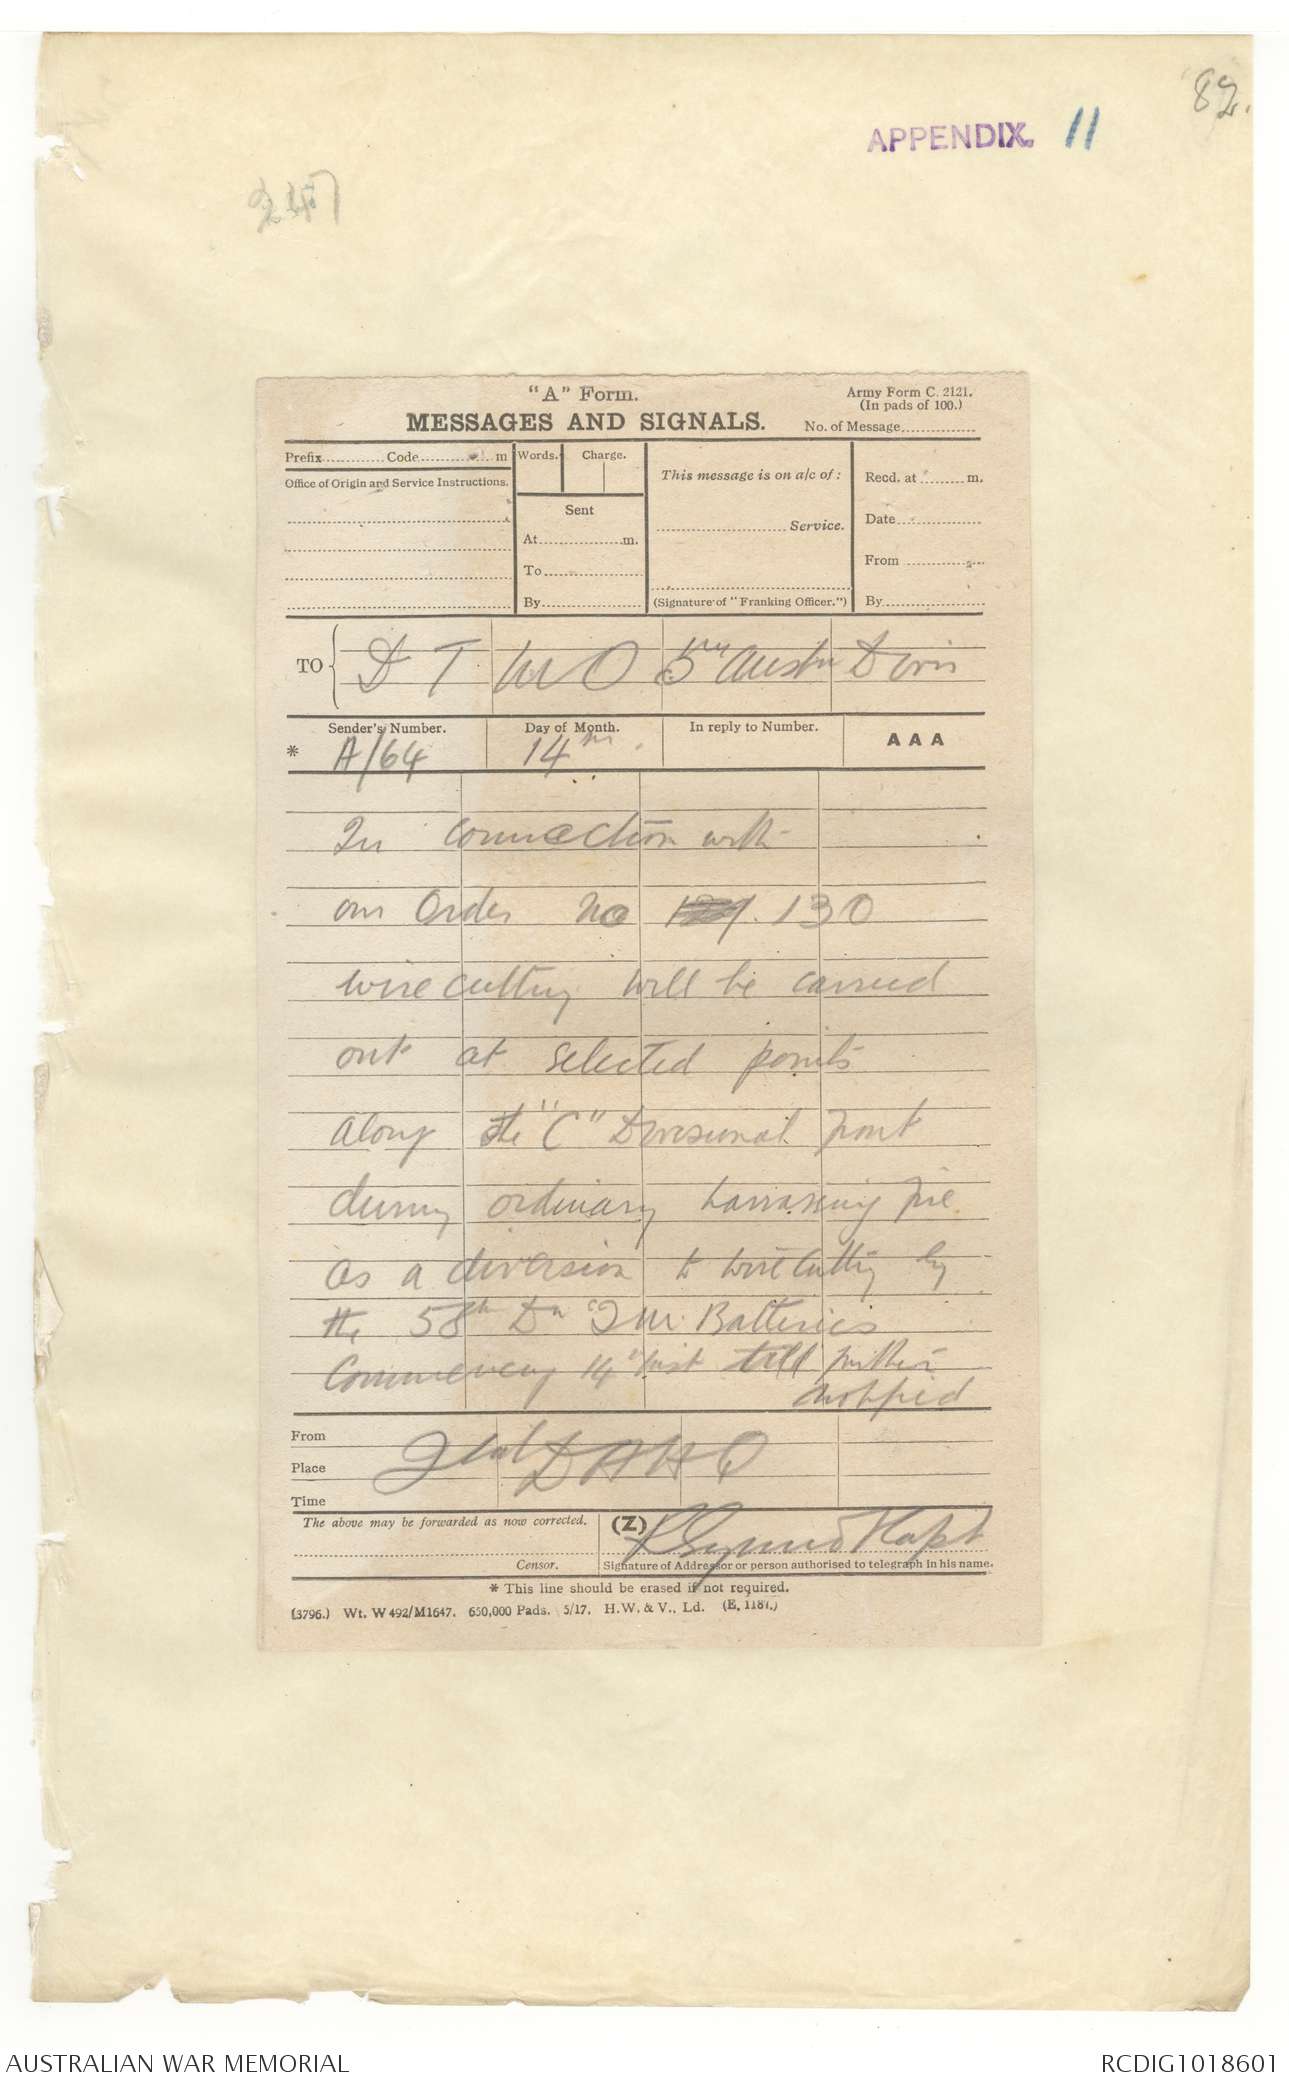 82.
APPENDIX. 11
"A" Form.
Army Form C. 2121.
(In pads of 100.)
MESSAGES AND SIGNALS.
No. of Message
Prefix Code m
Words. Charge.
This message is on a/c of:
Recd. at m.
Office of Origin and Service Instructions.
Sent
Service.
Date
At m.
From
To
By
(Signature of "Franking Officer.")
By
TO D T M O 5th Austn Divn
Sender's Number. Day of Month. In reply to Number. A A A
* A/64 14th
In connection with
our Order No 129. 130
wire cutting will be carried
out at selected points
along the "C" Divisional front
during ordinary harrassing fire
as a diversion to wire cutting by
the 58th Dn T M. Batteries
Commencing 14th inst till further
notified
From
Place D A H Q
Time
The above may be forwarded as now corrected. (Z)
Capt
Censor. Signature of Addressor or person authorised to telegraph in his name.
* This line should be erased if not required.
(3796.) Wt. W 492/M1647. 650,000 Pads. 5/17. H.W. & V., Ld. (E. 1187.)
AUSTRALIAN WAR MEMORIAL
RCDIG1018601